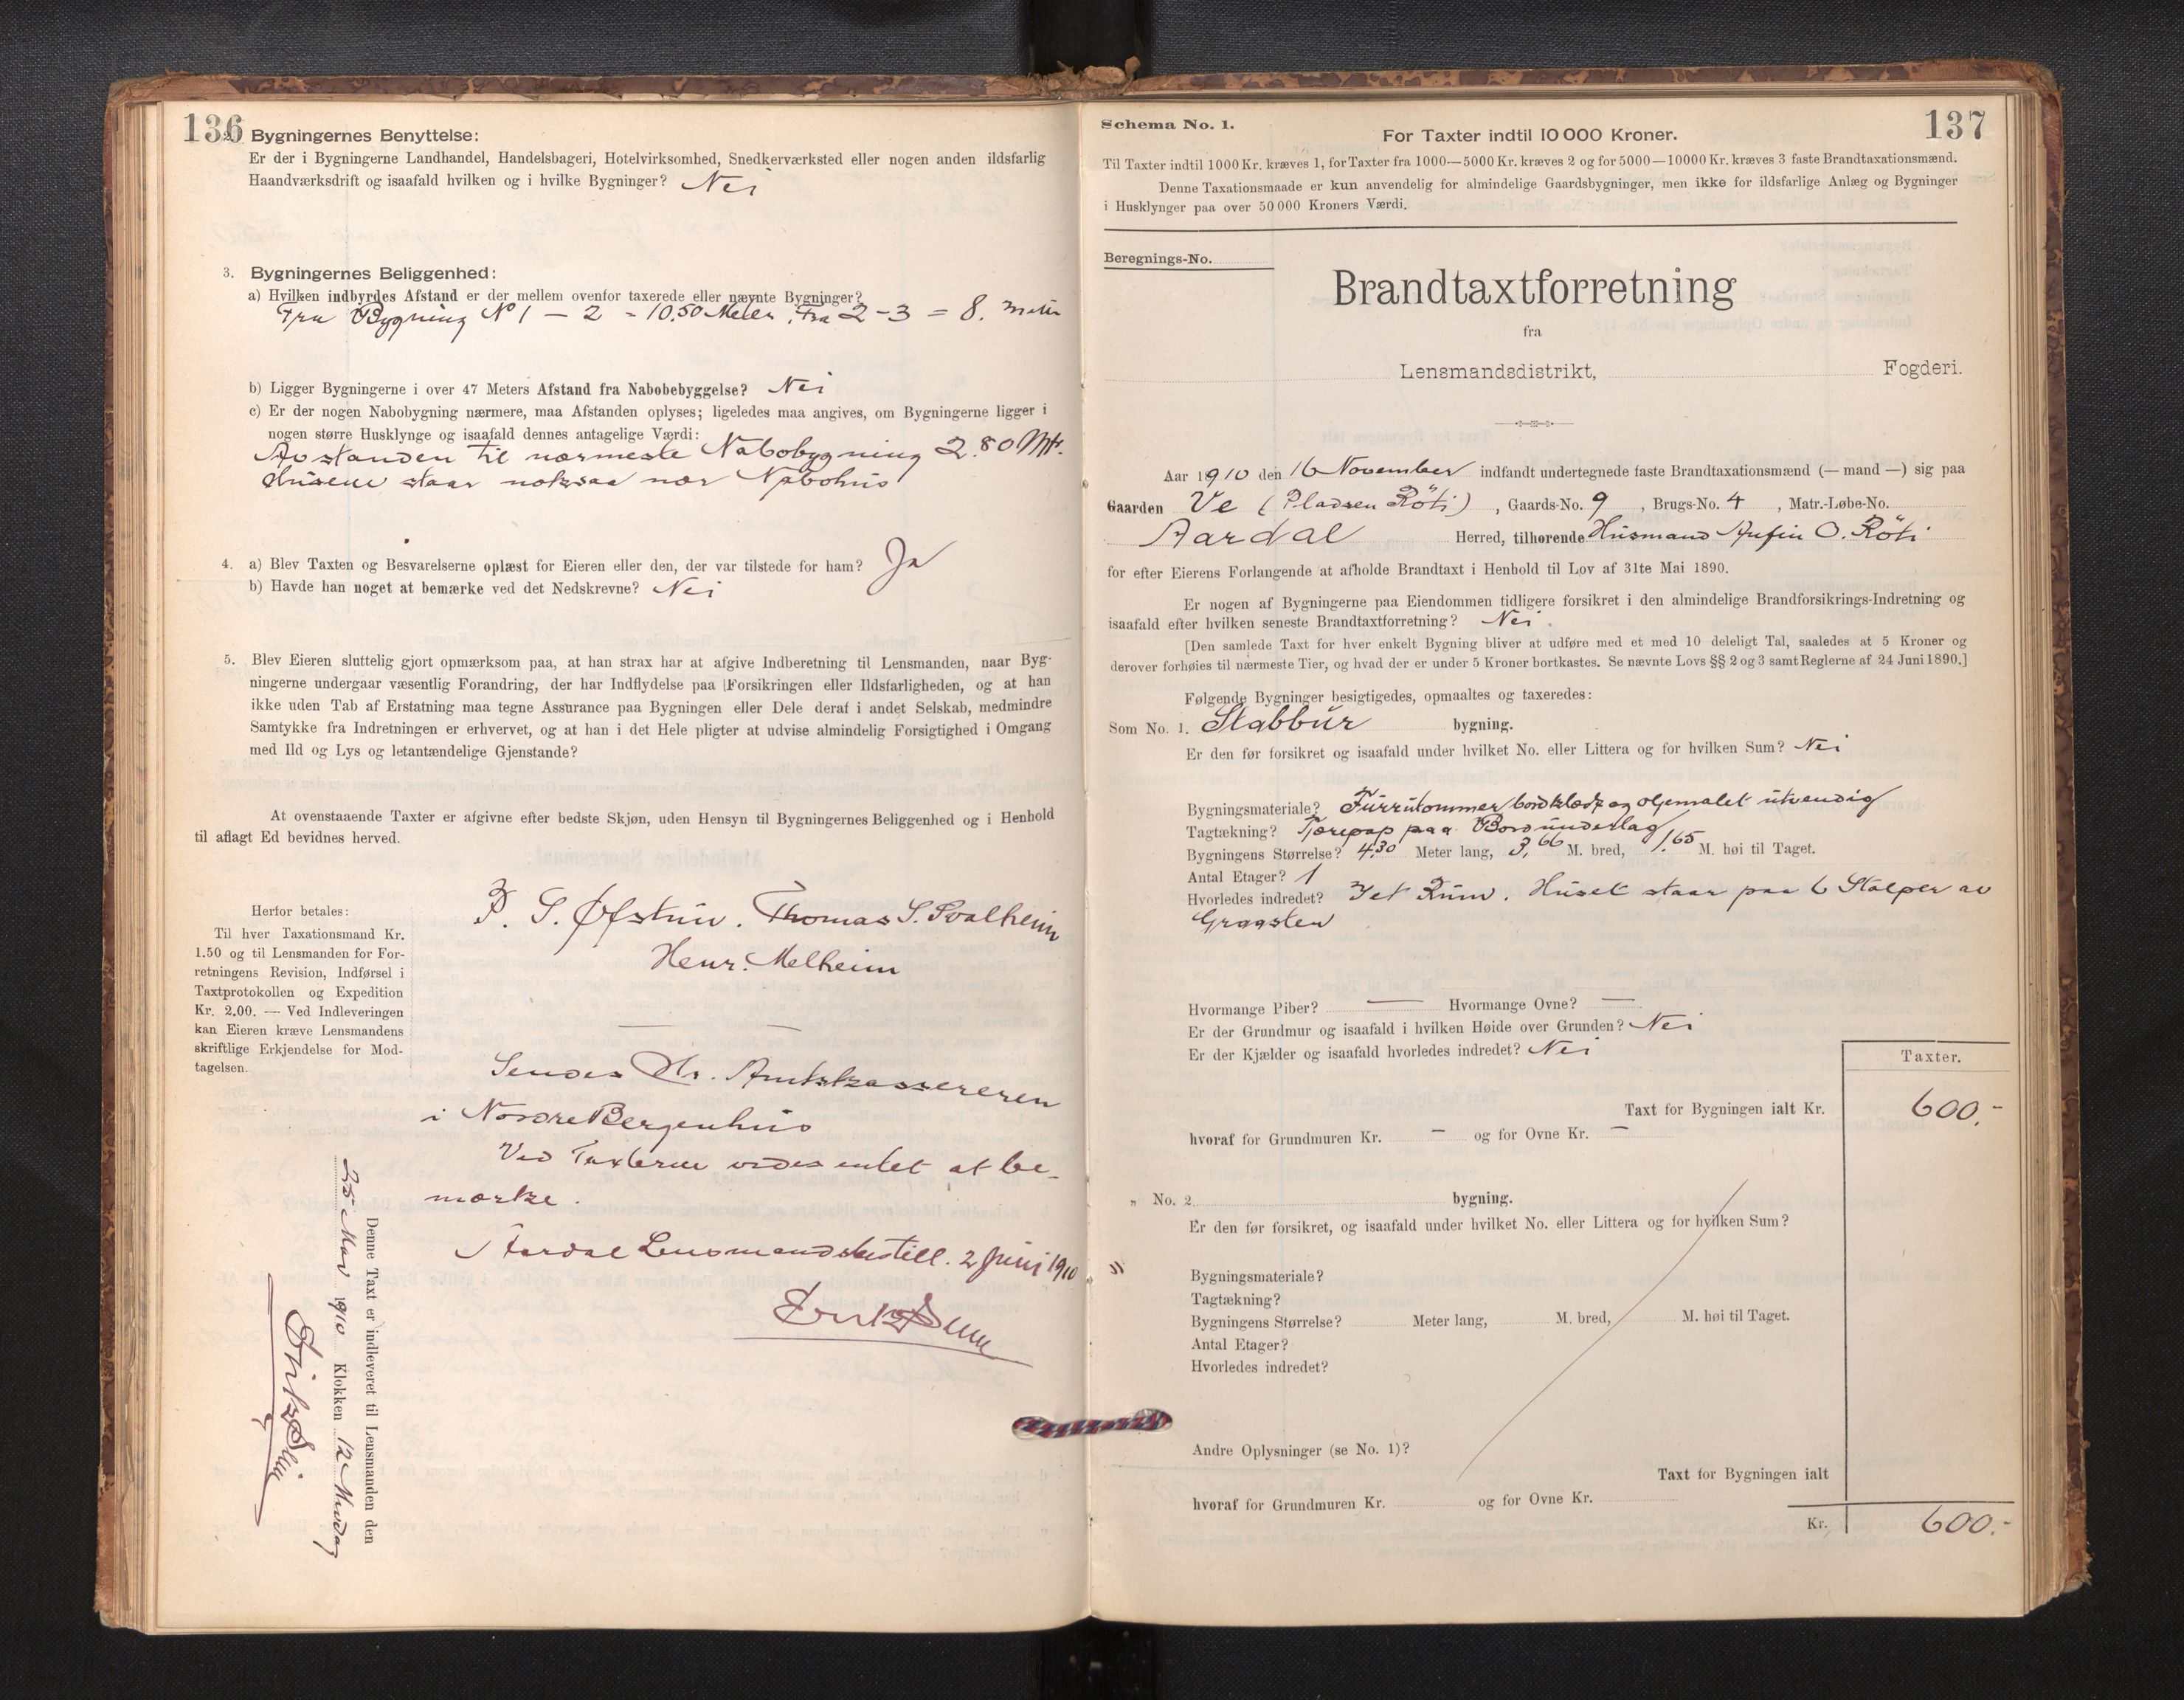 136
2. Bygningernes Benyttelse:
Er der i Bygningerne Landhandel, Handelsbageri, Hotelvirksomhed, Snedkerværksted eller nogen anden ildsfarlig
Haandværksdrift og isaafald hvilken og i hvilke Bygninger? Nei
3. Bygningernes Beliggenhed:
a) Hvilken indbyrdes Afstand er der mellem ovenfor taxerede eller nævnte Bygninger?
Fra Bygning No 1 – 2 = 10.50 Meter. Fra 2 – 3 = 8. meter
b) Ligger Bygningerne i over 47 Meters Afstand fra Nabobebyggelse? Nei
c) Er der nogen Nabobygning nærmere, maa Afstanden oplyses; ligeledes maa angives, om Bygningerne ligger i
nogen større Husklynge og isaafald dennes antagelige Værdi:
Avstanden til nærmeste Nabobygning 2.80 Mtr.
Husene staar noksaa nær Nabohus
4. a) Blev Taxten og Besvarelserne oplæst for Eieren eller den, der var tilstede for ham? Ja
b) Havde han noget at bemærke ved det Nedskrevne? Nei
5. Blev Eieren sluttelig gjort opmærksom paa, at han strax har at afgive Indberetning til Lensmanden, naar Byg-
ningerne undergaar væsentlig Forandring, der har Indflydelse paa Forsikringen eller Ildsfarligheden, og at han
ikke uden Tab af Erstatning maa tegne Assurance paa Bygningen eller Dele deraf i andet Selskab, medmindre
Samtykke fra Indretningen er erhvervet, og at han i det Hele pligter at udvise almindelig Forsigtighed i Omgang
med Ild og Lys og letantændelige Gjenstande?
At ovenstaaende Taxter er afgivne efter bedste Skjøn, uden Hensyn til Bygningernes Beliggenhed og i Henhold
til aflagt Ed bevidnes herved.
P. S. Øfstun. Thomas S. Svalheim
Henr. Melheim
Herfor betales:
Til hver Taxationsmand Kr.
1.50 og til Lensmanden for For-
retningens Revision, Indførsel i
Taxtprotokollen og Expedition
Kr. 2.00. — Ved Indleveringen
kan Eieren kræve Lensmandens
skriftlige Erkjendelse for Mod-
tagelsen.
Sendes Hr. Amtskassereren
i Nordre Bergenhus
Ved Taxterne vides intet at be-
mærke.
Aardal Lensmandsbestill. 2 Juni 1910
Denne Taxt er indleveret til Lensmanden den
25 Mai 1910 Klokken 12 Middag
137
Schema No. 1.
For Taxter indtil 10 000 Kroner.
Til Taxter indtil 1000 Kr. kræves 1, for Taxter fra 1000—5000 Kr. kræves 2 og for 5000—10000 Kr. kræves 3 faste Brandtaxationsmænd.
Denne Taxationsmaade er kun anvendelig for almindelige Gaardsbygninger, men ikke for ildsfarlige Anlæg og Bygninger
i Husklynger paa over 50 000 Kroners Værdi.
Beregnings-No.
Brandtaxtforretning
fra
Lensmandsdistrikt, Fogderi.
Aar 1910 den 16 November indfandt undertegnede faste Brandtaxationsmænd (— mand —) sig paa
Gaarden Ve (Pladsen Röti), Gaards-No. 9, Brugs-No. 4, Matr.-Løbe-No.
Aardal Herred, tilhørende Husmand Anfin O. Röti
for efter Eierens Forlangende at afholde Brandtaxt i Henhold til Lov af 31te Mai 1890.
Er nogen af Bygningerne paa Eiendommen tidligere forsikret i den almindelige Brandforsikrings-Indretning og
isaafald efter hvilken seneste Brandtaxtforretning? Nei.
[Den samlede Taxt for hver enkelt Bygning bliver at udføre med et med 10 deleligt Tal, saaledes at 5 Kroner og
derover forhøies til nærmeste Tier, og hvad der er under 5 Kroner bortkastes. Se nævnte Lovs §§ 2 og 3 samt Reglerne af 24 Juni 1890.]
Følgende Bygninger besigtigedes, opmaaltes og taxeredes:
Som No. 1. Stabbur bygning.
Er den før forsikret og isaafald under hvilket No. eller Littera og for hvilken Sum? Nei
Bygningsmateriale? Furutømmer bordklædt og oljemalet utvendig
Tagtækning? Tjærepap paa Bordunderlag
Bygningens Størrelse? 4.30 Meter lang, 3,66 M. bred, 1,65 M. høi til Taget.
Antal Etager? 1
Hvorledes indredet? Jet Rum. Huset staar paa 6 Stolper av
Graasten
Hvormange Piber? — Hvormange Ovne? —
Er der Grundmur og isaafald i hvilken Høide over Grunden? Nei
Er der Kjælder og isaafald hvorledes indredet? Nei
Taxter.
Taxt for Bygningen ialt Kr. 600.-
hvoraf for Grundmuren Kr. – og for Ovne Kr. –
„ No. 2 bygning.
Er den før forsikret, og isaafald under hvilket No. eller Littera og for hvilken Sum?
Bygningsmateriale?
Tagtækning?
Bygningens Størrelse? Meter lang, M. bred, M. høi til Taget.
Antal Etager?
Hvorledes indredet?
Andre Oplysninger (se No. 1)?
Taxt for Bygningen ialt
hvoraf for Grundmuren Kr. og for Ovne Kr.
Kr. 600.-